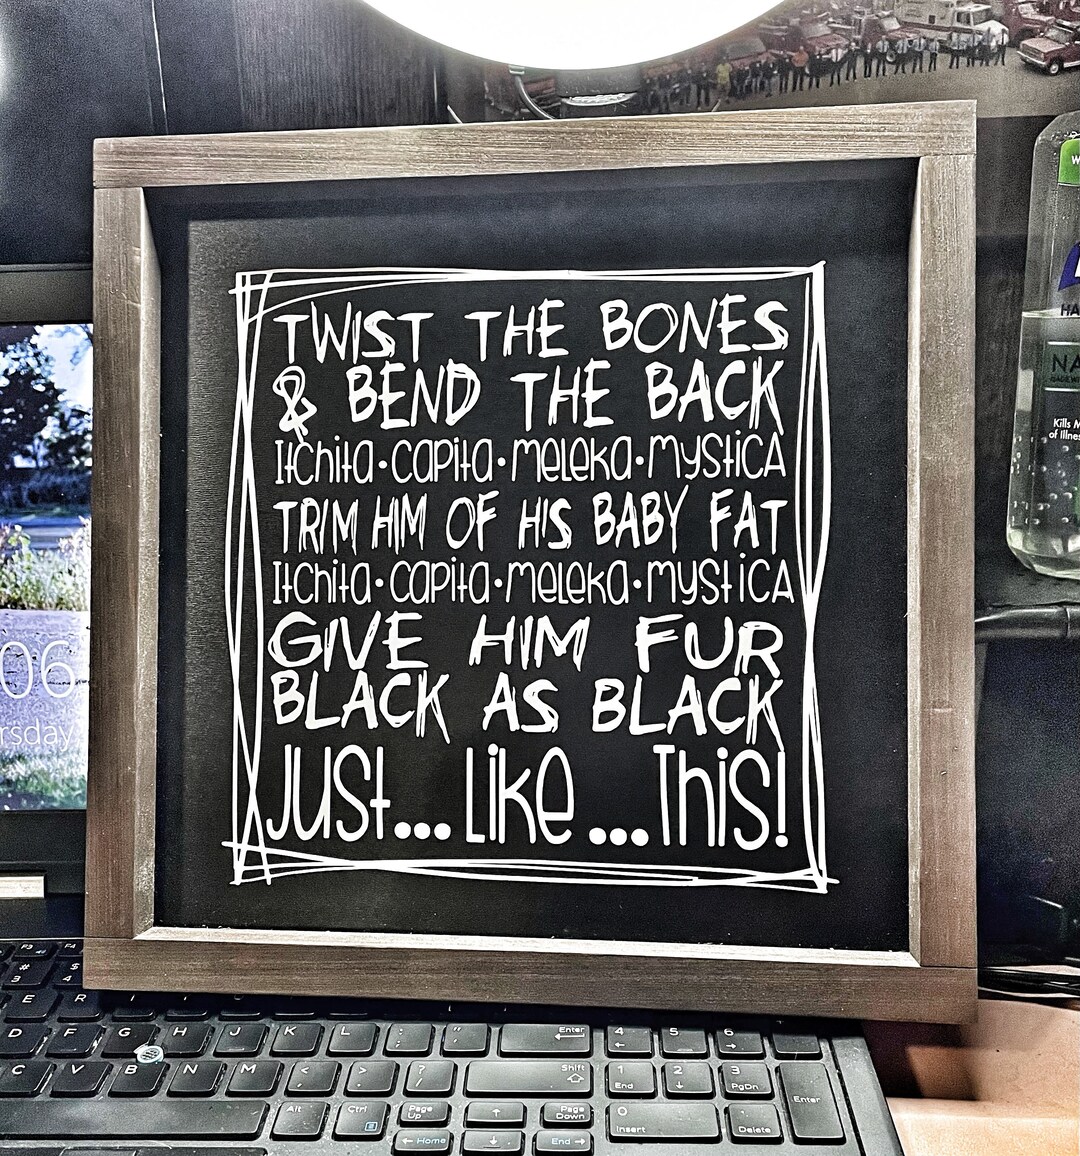 TWIST THE BONES
& BEND THE BACK
Itchita•capita•meleka•mystica
TRIM HIM OF HIS BABY FAT
Itchita•capita•meleka•mystica
GIVE HIM FUR
BLACK AS BLACK
Just... Like ...This!
06
rsday
Kills M
of Illnes
HA
NA
F3 F4
# $
3 4
E R
D F G H J K L : " Enter
; '
C V B N M < > ? Shift
Alt Ctrl Page Up Page Down
Home End
4 5 6
1 End 2 3 PgDn
0 Insert . Delete Enter